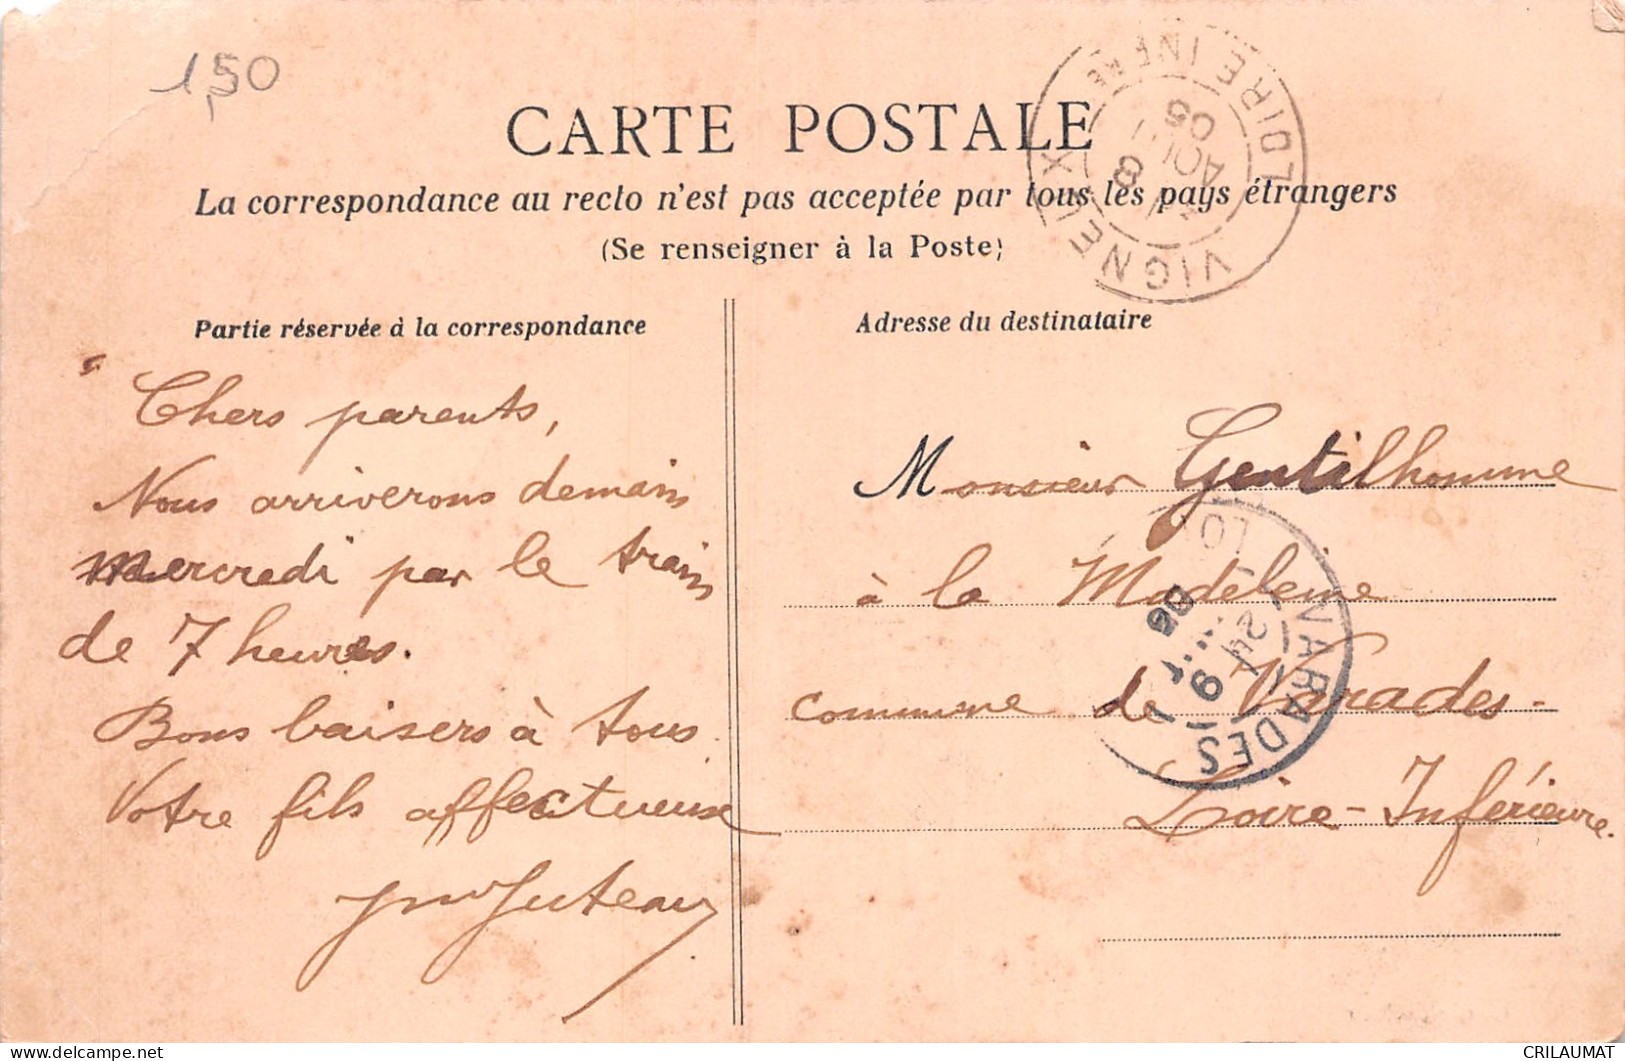 1,50
CARTE POSTALE
La correspondance au recto n'est pas acceptée par tous les pays étrangers
(Se renseigner à la Poste)
VIGNEUX LOIRE INFRE
8
AOUT
05
Partie réservée à la correspondance
Chers parents,
Nous arriverons demain
mercredi par le train
de 7 heures.
Bons baisers à tous.
Votre fils affectueux
Juteau
Adresse du destinataire
Monsieur Gentilhomme
à la Madeleine
commune de Varades-
Loire-Inférieure.
VARADES LO
9
05
CRILAUMAT